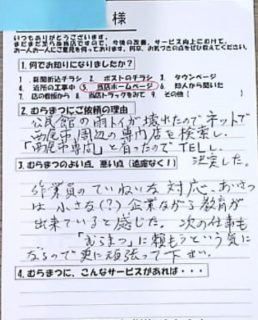 様
いつもありがとうございます。
まだまだ至らぬ商店ですので、今後の改善、サービス向上にむけて、
お一人お一人にご意見を伺っております。何卒、お気づきの点をぜひ教えてください。
1. 何でお知りになりましたか?
1. 新聞折込チラシ 2. ポストのチラシ 3. タウンページ
4. 近所の工事中 5. 当店ホームページ 6. 知人から聞いた
7. 店の看板から 8. 当店トラックをみて 9. その他(
2. むらまつにご依頼の理由
公民館の雨トイが壊れたのでネットで
西尾市周辺の専門店を検索し、
「西尾市専門」と有ったのでTELし
決定した。
3. むらまつのよい点、悪い点(遠慮なく!)
作業員のていねいな対応、あいさつ
は小さな(?)企業ながら教育が
出来ていると感じた。次の仕事も
「むらまつ」に頼もうという気に
なるので更に頑張って下さい。
4. むらまつに、こんなサービスがあれば・・・